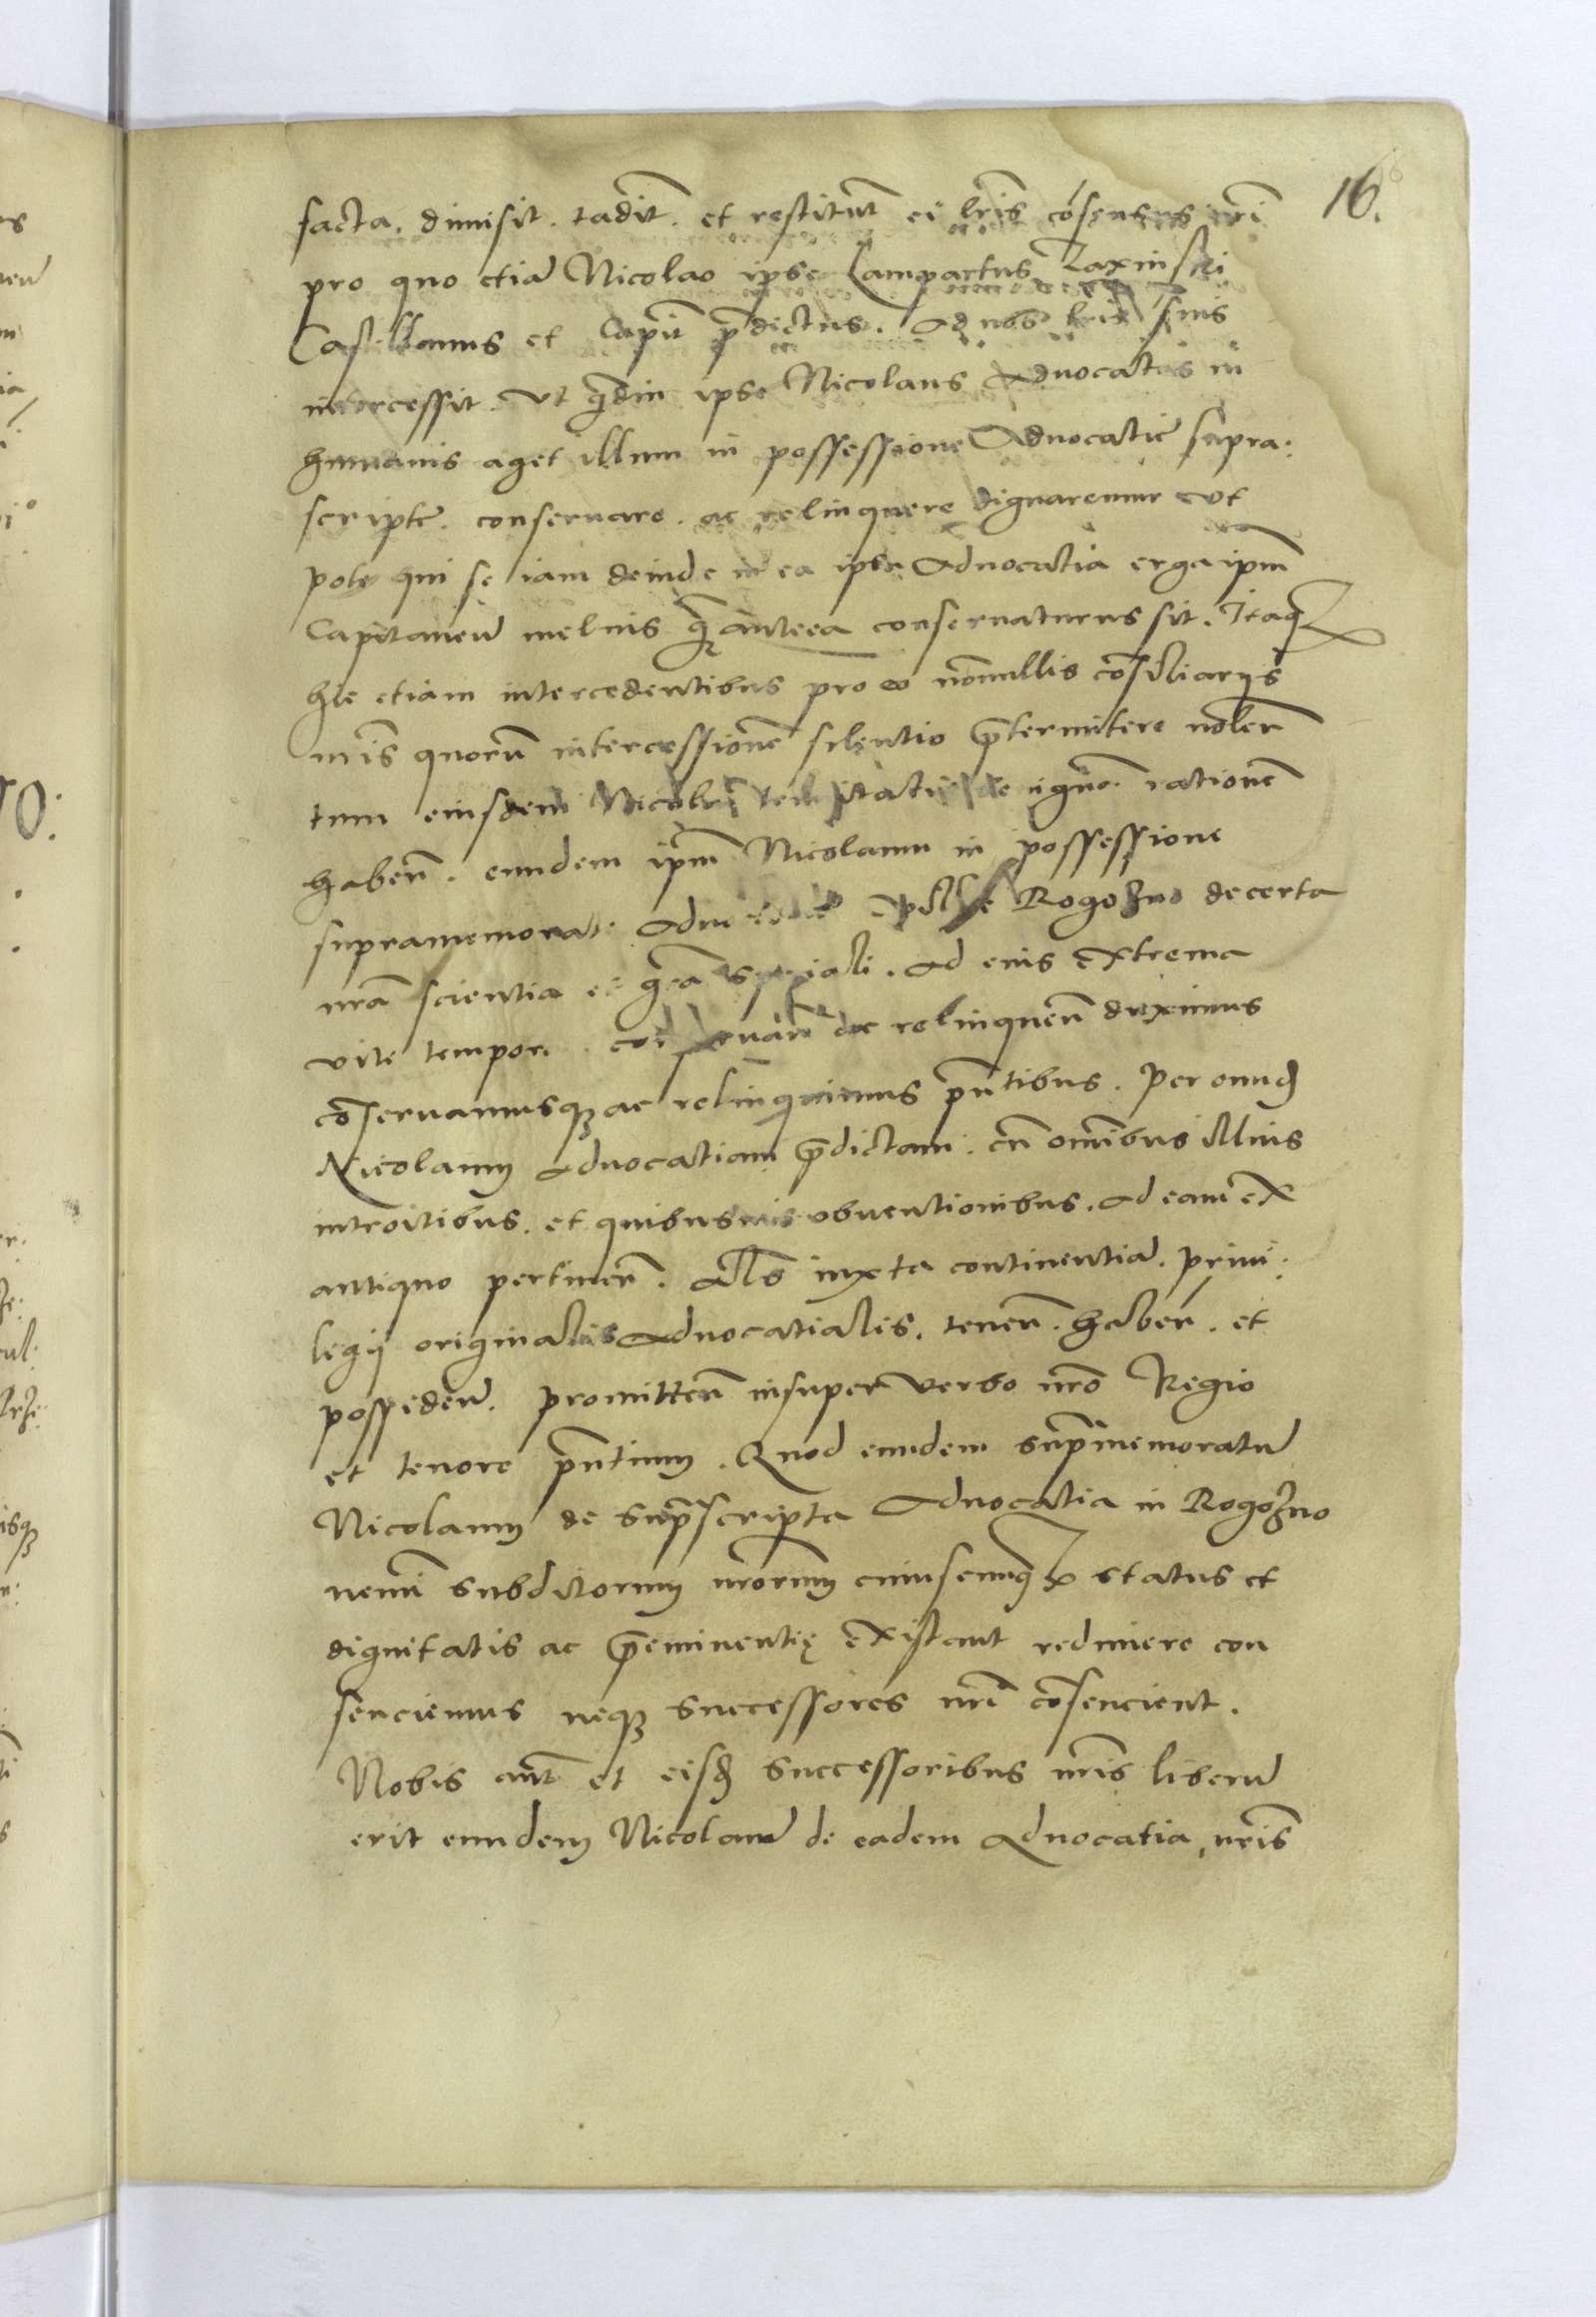 16.
facta. dimisit. tradit. et restituit ei lr̃is cõsensus nr̃i
pro quo etiã Nicolao ipse Lampartus Laxinski
Castellanus et Capit p̃dictus. ad nos lr̃is suis
intercessit. Vt q̃diu ipse Nicolaus Aduocatus in
humanis aget illum in possessione Aduocatie supra:
scripte. conseruare. ac relinquere dignaremur vt
pote qui se iam deinde in ea ipsa Aduocatia erga ip̃m
Capitaneũ melius q̃ȝ anteea conseruaturus sit. Itaqȝ
hic etiam intercedentibus pro eo nõnullis cõsiliarijs
nr̃is quorũ intercessionẽ silentio p̃termitere nolen̄
tum eiusdem Nicolai rationẽ
haben̄. eundem ip̃m Nicolaum in possessione
supramemorate Rogozno de certa
nr̃a scientia et gr̃a speciali. ad eius extrema
vite tempora. conseruan̄ ac relinquen̄ duximus
cõseruamusqȝ ac relinquimus pn̄tibus. Per eundẽ
Nicolaum aduocatiam p̃dictam. cũ omnibus illius
introitibus. et quibusuis obuentionibus. ad eam ex
antiquo pertinen̄. Als iuxta continentiã. priui:
legij originalis aduocatialis. tenen̄. haben̄. et
possiden̄. promitten̄ insuper verbo nr̃o Regio
et tenore pn̄tium. Quod eundem sup̃memoratũ
Nicolaum de sup̃scripta Aduocatia in Rogozno
nemini subditorum nr̃orum cuiuscunqȝ status et
dignitatis ac p̃eminentię existant redimere con
senciemus neqȝ successores nr̃i cõsencient.
Nobis aut̃ et eisdẽ successoribus nr̃is liberũ
erit eundem Nicolaum de eadem aduocatia, nr̃is